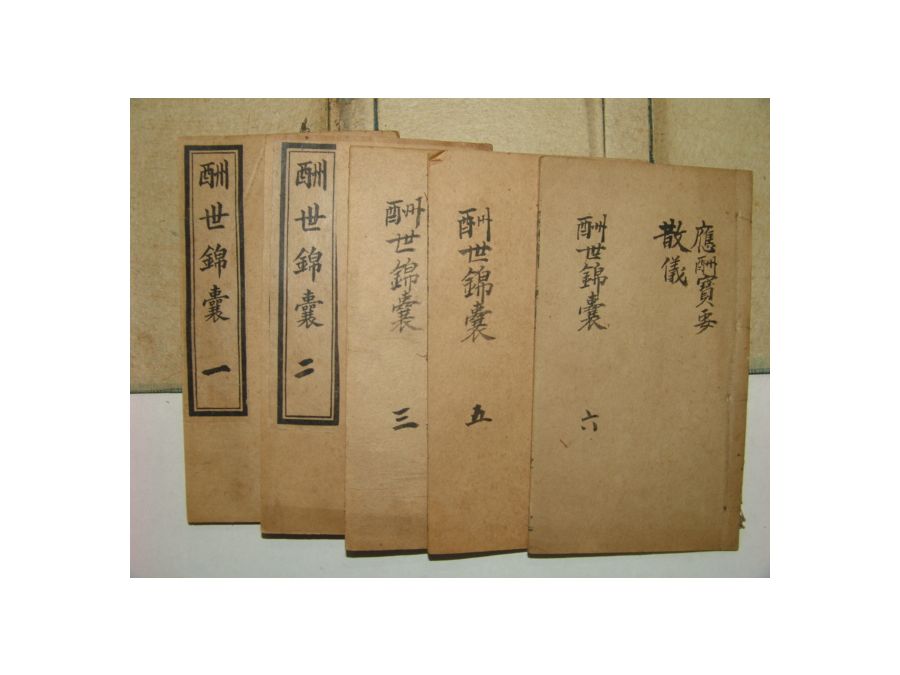 酬世錦囊 一
酬世錦囊 二
酬世錦囊 三
酬世錦囊 五
酬世錦囊 六
應酬寶要
散儀